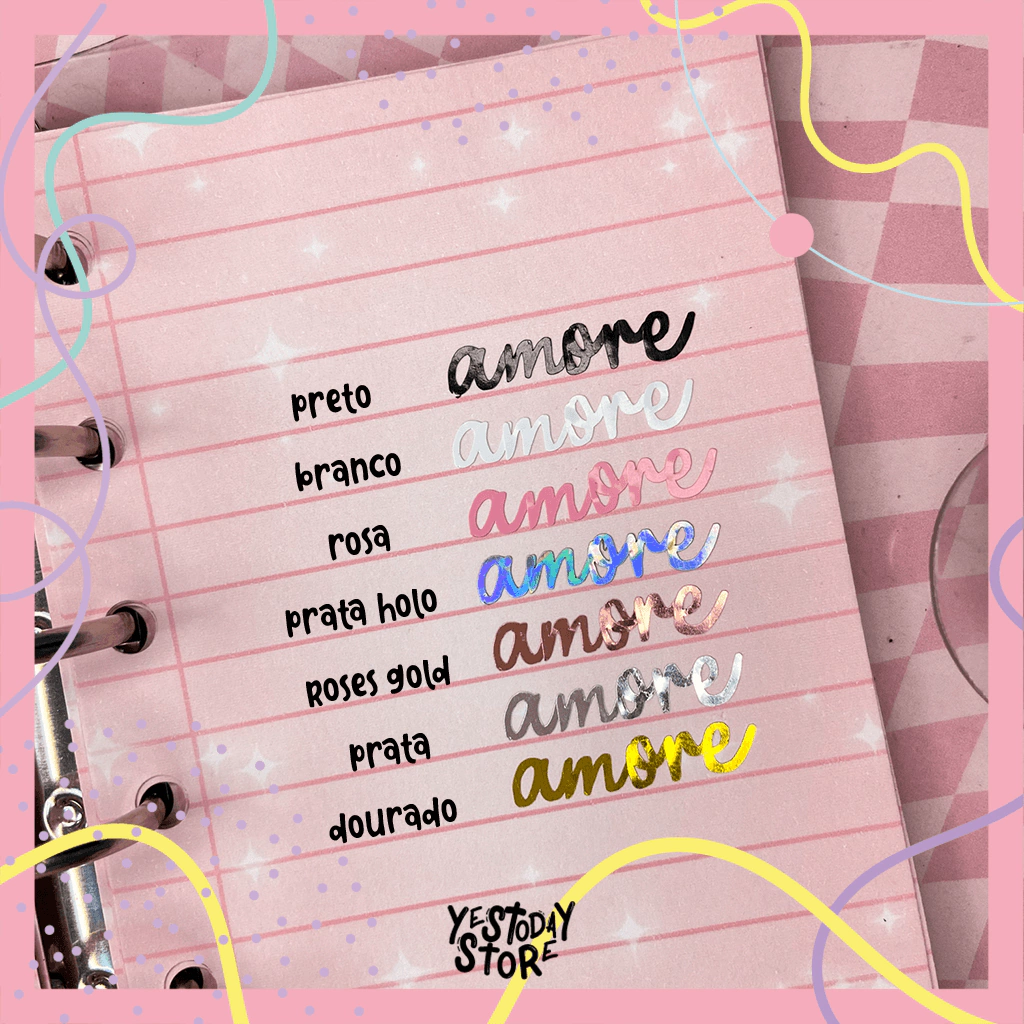 preto amore
branco amore
rosa amore
prata holo amore
Roses gold amore
prata amore
dourado amore
YESTODAY
STORE